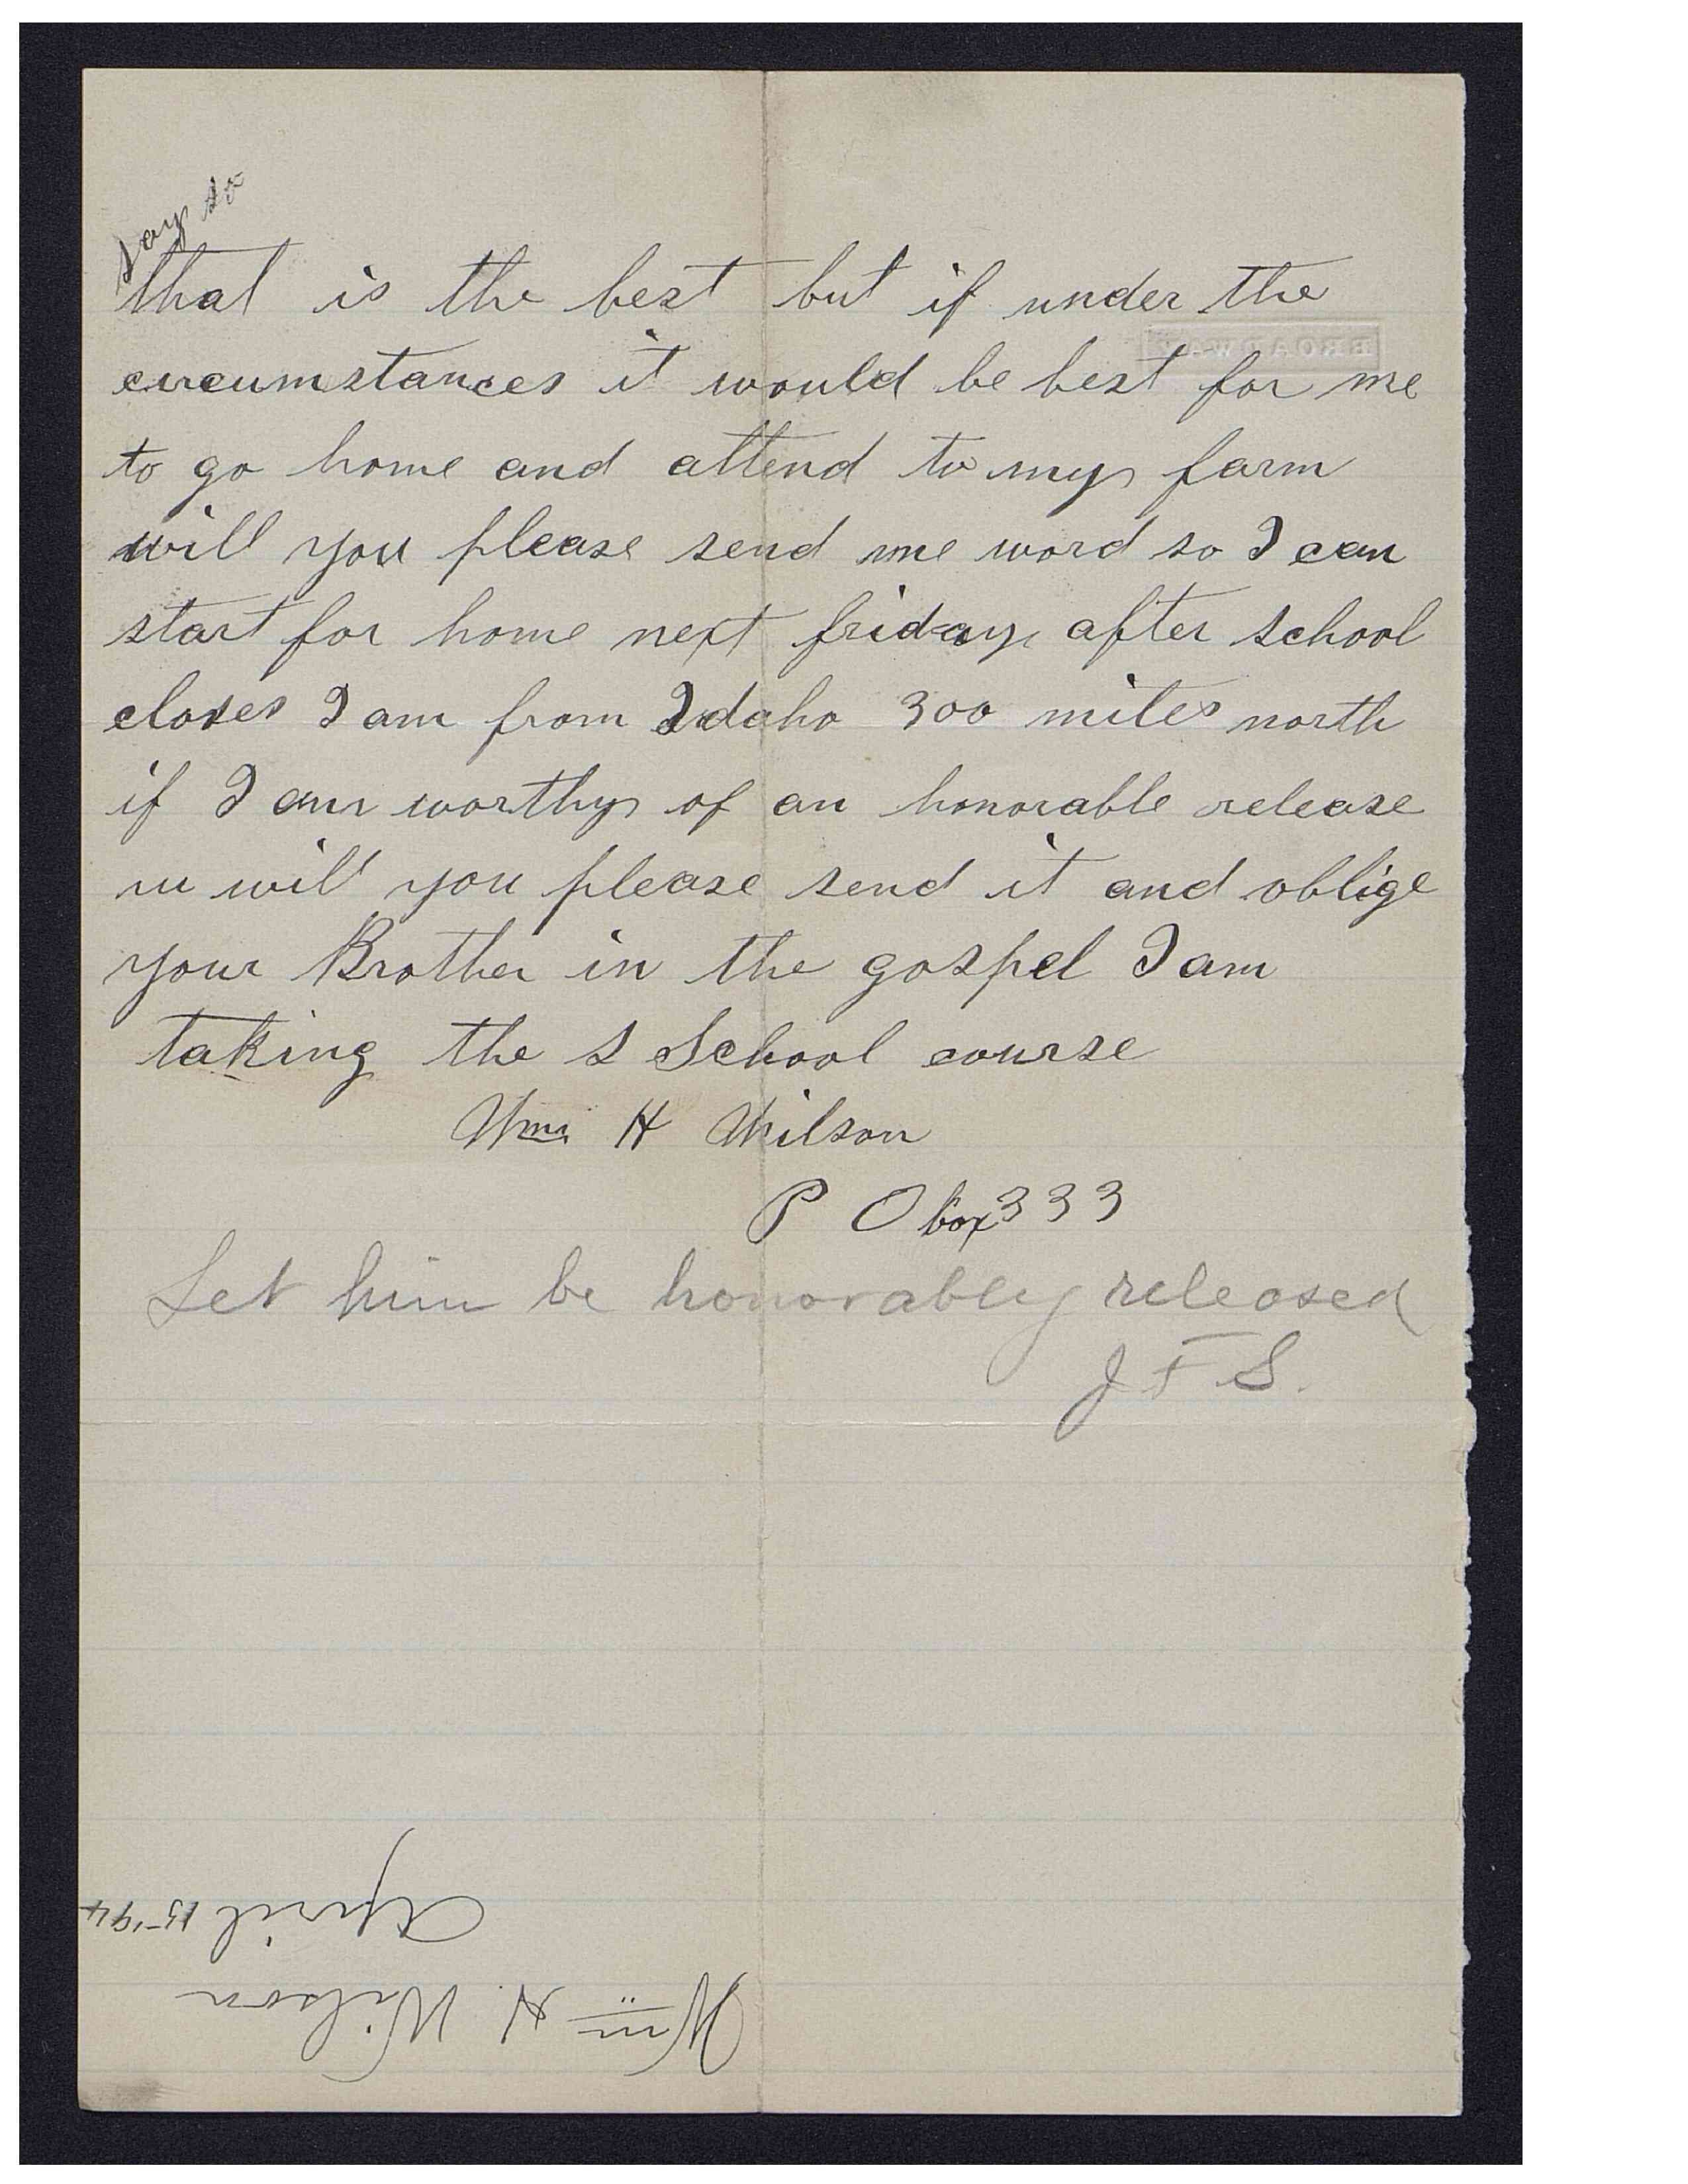 say so
that is the best but if under the
BROADWAY
circumstances it would be best for me
to go home and attend to my farm
will you please send me word so I can
start for home next friday after school
closes I am from Idaho 300 miles north
if I am worthy of an honorable release
will you please send it and oblige
your Brother in the gospel I am
taking the S School course
Wm H Wilson
P O box 333
Let him be honorably released
J F S.
Wm H. Wilson
April 15 '94